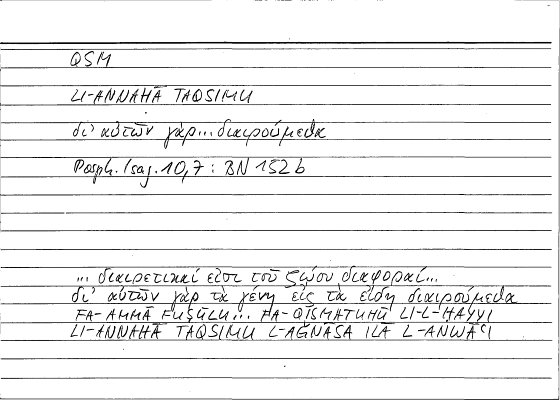 QSM
LI-ANNAHĀ TAQSIMU
δι' αὐτῶν γὰρ... διαιρούμεθα
Porph. Isag. 10,7: BN 152b
... διαιρετικαί εἰσι τοῦ ζῴου διαφοραί...
δι' αὐτῶν γὰρ τὰ γένη εἰς τὰ εἴδη διαιρούμεθα
FA-AMMĀ FUṢŪLU... FA-QISMATUHŪ LI-L-ḤAYYI
LI-ANNAHĀ TAQSIMU L-AǦNĀSA ILĀ L-ANWĀʿI